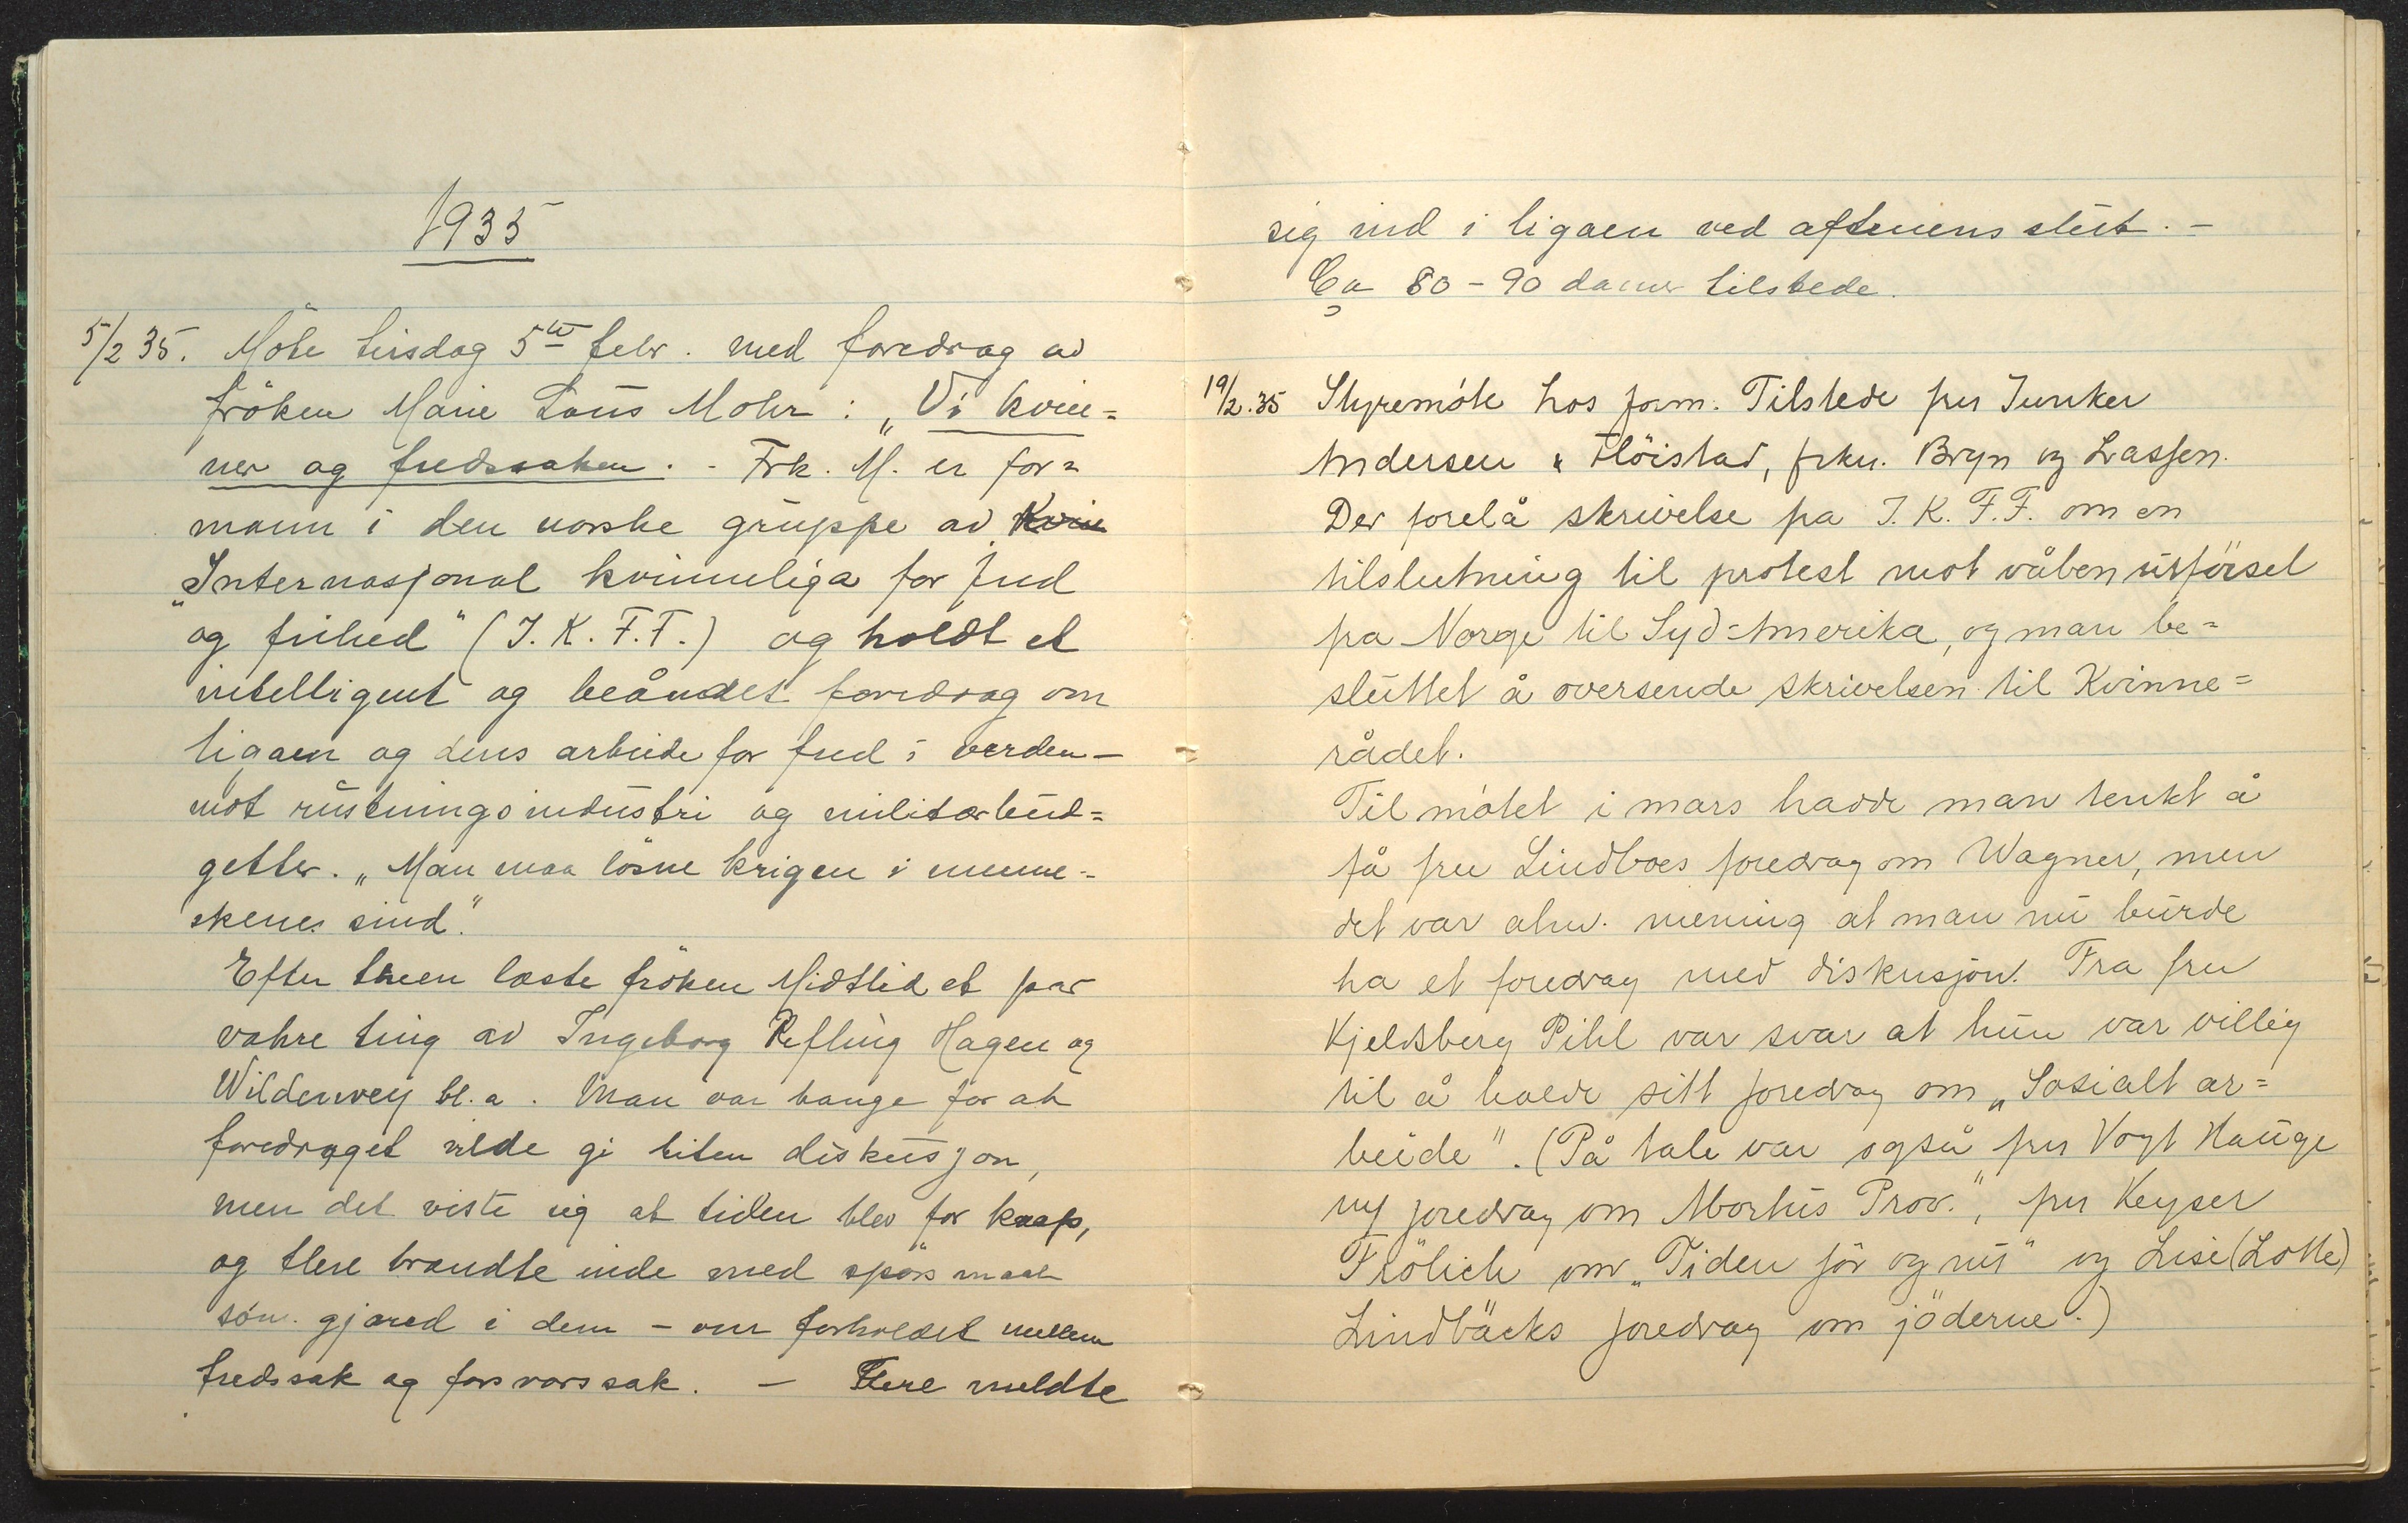 1935
5/2 35. Möte tirsdag 5te febr. med foredrag av
fröken Marie Lous Mohr: „Vi kvin=
ner og fredssaken. - Frk. M. er for=
mann i den norske gruppe av Kvin
„Internasjonal kvinneliga for fred
og frihed" (I. K. F. F.) og holdt et
intelligent og beåndet foredrag om
ligaen og dens arbeide for fred i verden –
mot rüstningsindüstri og militærbüd=
getter. „Man maa lösne krigen i menne-
skenes sind."
Efter theen læste fröken Midtlid et par
vakre ting av Ingeborg Refling Hagen og
Wildenwey bl. a. Man var bange for at
foredraget vilde gi liten diskusjon,
men det viste sig at tiden blev for knap,
og flere brændte inde med spörsmaal
som gjæred i dem – om forholdet mellem
fredssak og forsvarssak. – Flere meldte
sig ind i ligaen ved aftenens slut. –
Ca 80 – 90 damer tilstede.
19/2.35 Styremöte hos form. Tilstede fru Junker
Andersen & Höistad, frkn. Bryn og Lassen.
Der forelå skrivelse fra I. K. F. F. om en
tilslutning til protest mot våbenutförsel
fra Norge til Syd=Amerika, og man be=
sluttet å oversende skrivelsen til Kvinne=
rådet.
Til mötet i mars hadde man tenkt å
få fru Lindboes foredrag om Wagner, men
det var alm. mening at man nü bürde
ha et foredrag med diskusjon. Fra fru
Kjeldsberg Pihl var svar at hün var villig
til å holde sitt foredrag om „Sosialt ar=
beide". (På tale var også fru Vogt Hauge
ny foredrag om Prov.", fru Keyser
Frölich om „Tiden för og nü" og Lise (Lotte)
Lindbäcks foredrag om jöderne.)